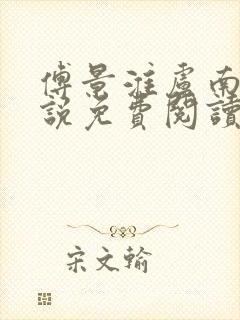 傅景淮虞南
說免費閱讀
宋文翰